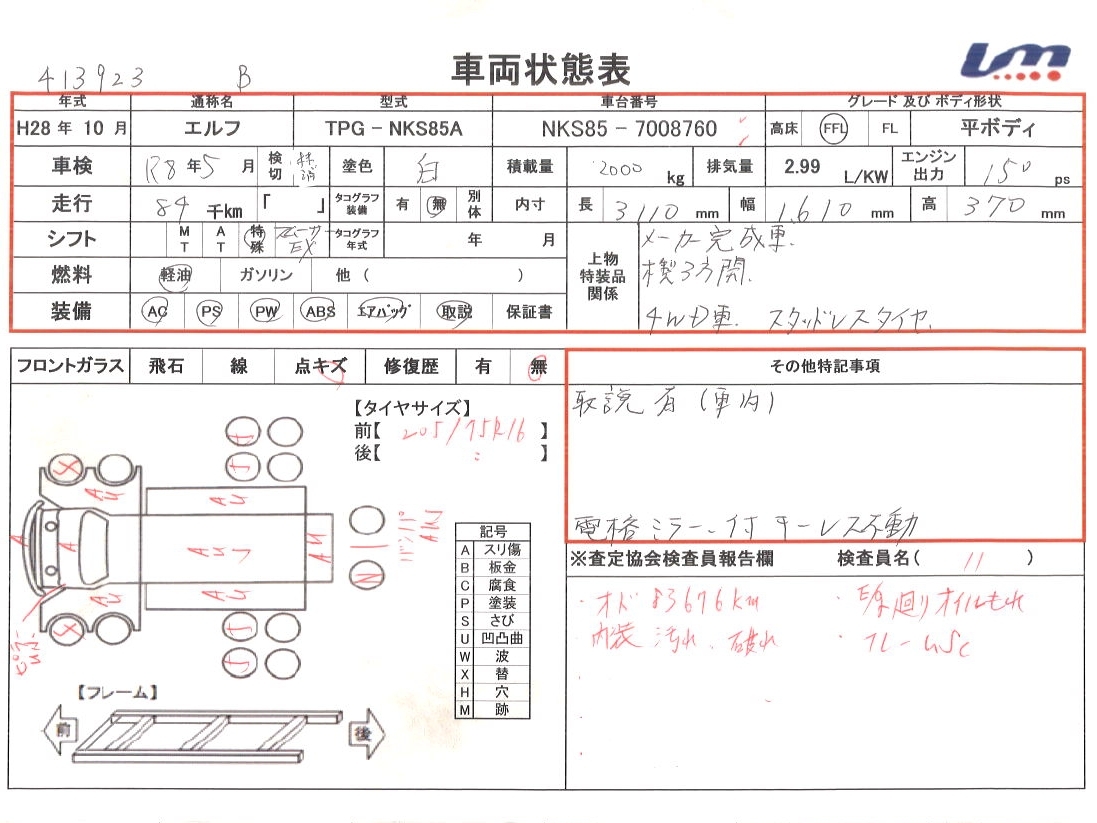 413923 B
車両状態表
年式 通称名 型式 車台番号 グレード 及び ボディ形状
H28 年 10 月 エルフ TPG - NKS85A NKS85 - 7008760 高床 FFL FL 平ボディ
車検 R8 年 5 月 検切 抹消 塗色 白 積載量 2000 kg 排気量 2.99 L/KW エンジン出力 150 ps
走行 84 千km 「 」 タコグラフ装備 有 無 別体 内寸 長 3110 mm 幅 1,610 mm 高 370 mm
シフト MT AT 特殊 スムーサーEX タコグラフ年式 年 月 上物特装品関係 メーカー完成車.
燃料 軽油 ガソリン 他 ( ) 3方開.
装備 AC PS PW ABS エアバッグ 取説 保証書 4WD車. スタッドレスタイヤ.
フロントガラス 飛石 線 点キズ 修復歴 有 無 その他特記事項
取説 有 (車内)
電格ミラー付 キーレス不動
【タイヤサイズ】
前【 205/75R16 】
後【 〃 】
記号
A スリ傷
B 板金
C 腐食
P 塗装
S さび
U 凹凸曲
W 波
X 替
H 穴
M 跡
※査定協会検査員報告欄 検査員名( 11 )
・オド 83676km ・E/G廻りオイルもれ
・内装 汚れ、破れ ・フレームSC
X X
A U
A U
A A
A U A U
A U
A U
【フレーム】
前 後